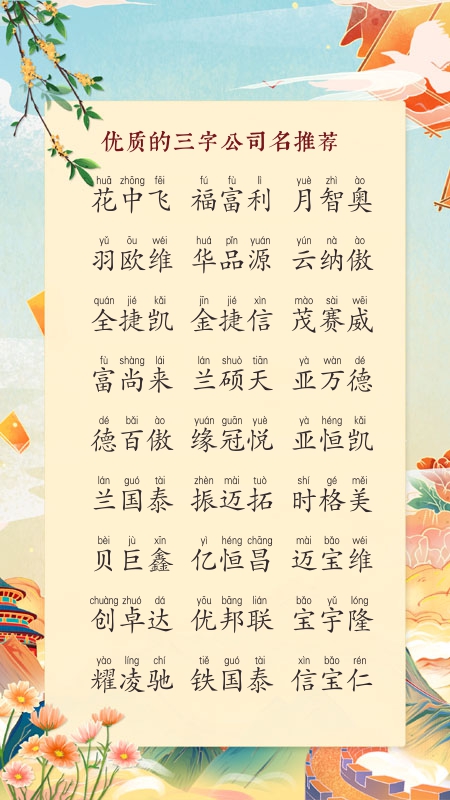 优质的三字公司名推荐
huā zhōng fēi fú fù lì yuè zhì ào
花中飞 福富利 月智奥
yǔ ōu wéi huá pǐn yuán yún nà ào
羽欧维 华品源 云纳傲
quán jié kǎi jīn jié xìn mào sài wēi
全捷凯 金捷信 茂赛威
fù shàng lái lán shuò tiān yà wàn dé
富尚来 兰硕天 亚万德
dé bǎi ào yuán guān yuè yà héng kǎi
德百傲 缘冠悦 亚恒凯
lán guó tài zhèn mài tuò shí gé měi
兰国泰 振迈拓 时格美
bèi jù xīn yì héng chāng mài bǎo wéi
贝巨鑫 亿恒昌 迈宝维
chuàng zhuó dá yōu bāng lián bǎo yǔ lóng
创卓达 优邦联 宝宇隆
yào líng chí tiě guó tài xìn bǎo rén
耀凌驰 铁国泰 信宝仁